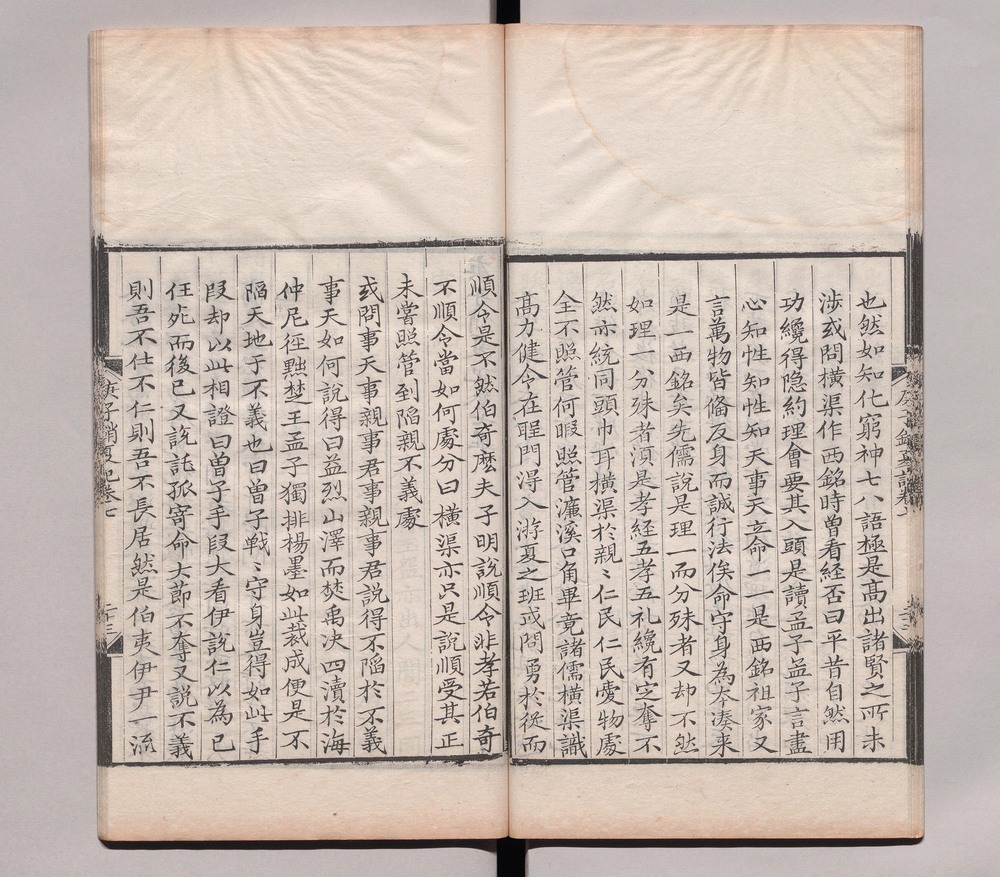 也然如知化窮神七八語極是髙出諸賢之所未
渉或問橫渠作西銘時曽看経否曰平昔自然用
功纔得隐約理會要其入頭是讀孟子孟子言盡
心知性知性知天事天立命一一是西銘祖家又
言萬物皆俻反身而誠行法俟命守身為本湊来
是一西銘矣先儒説是理一而分殊者又却不然
如理一分殊者湏是孝経五孝五礼纔有定奪不
然亦統同頭巾耳橫渠於親〻仁民仁民愛物處
全不照管何暇照管濂溪口角畢竟諸儒橫渠識
髙力健令在聖門淂入游夏之班或問勇於從而
順令是不然伯奇麽夫子明説順令非孝若伯奇
不順令當如何處分曰橫渠亦只是説順受其正
未嘗照管到陷親不義處
或問事天事親事君事親事君説得不陷於不義
事天如何說得曰益烈山澤而焚禹决四瀆於海
仲尼徑黜楚王孟子獨排楊墨如此裁成便是不
陷天地于不義也曰曽子戰〻守身豈得如此手
叚却以此相證曰曽子手叚大看伊説仁以為己
任死而後已又說託孤寄命大節不奪又説不義
則吾不仕不仁則吾不長居然是伯夷伊尹一流